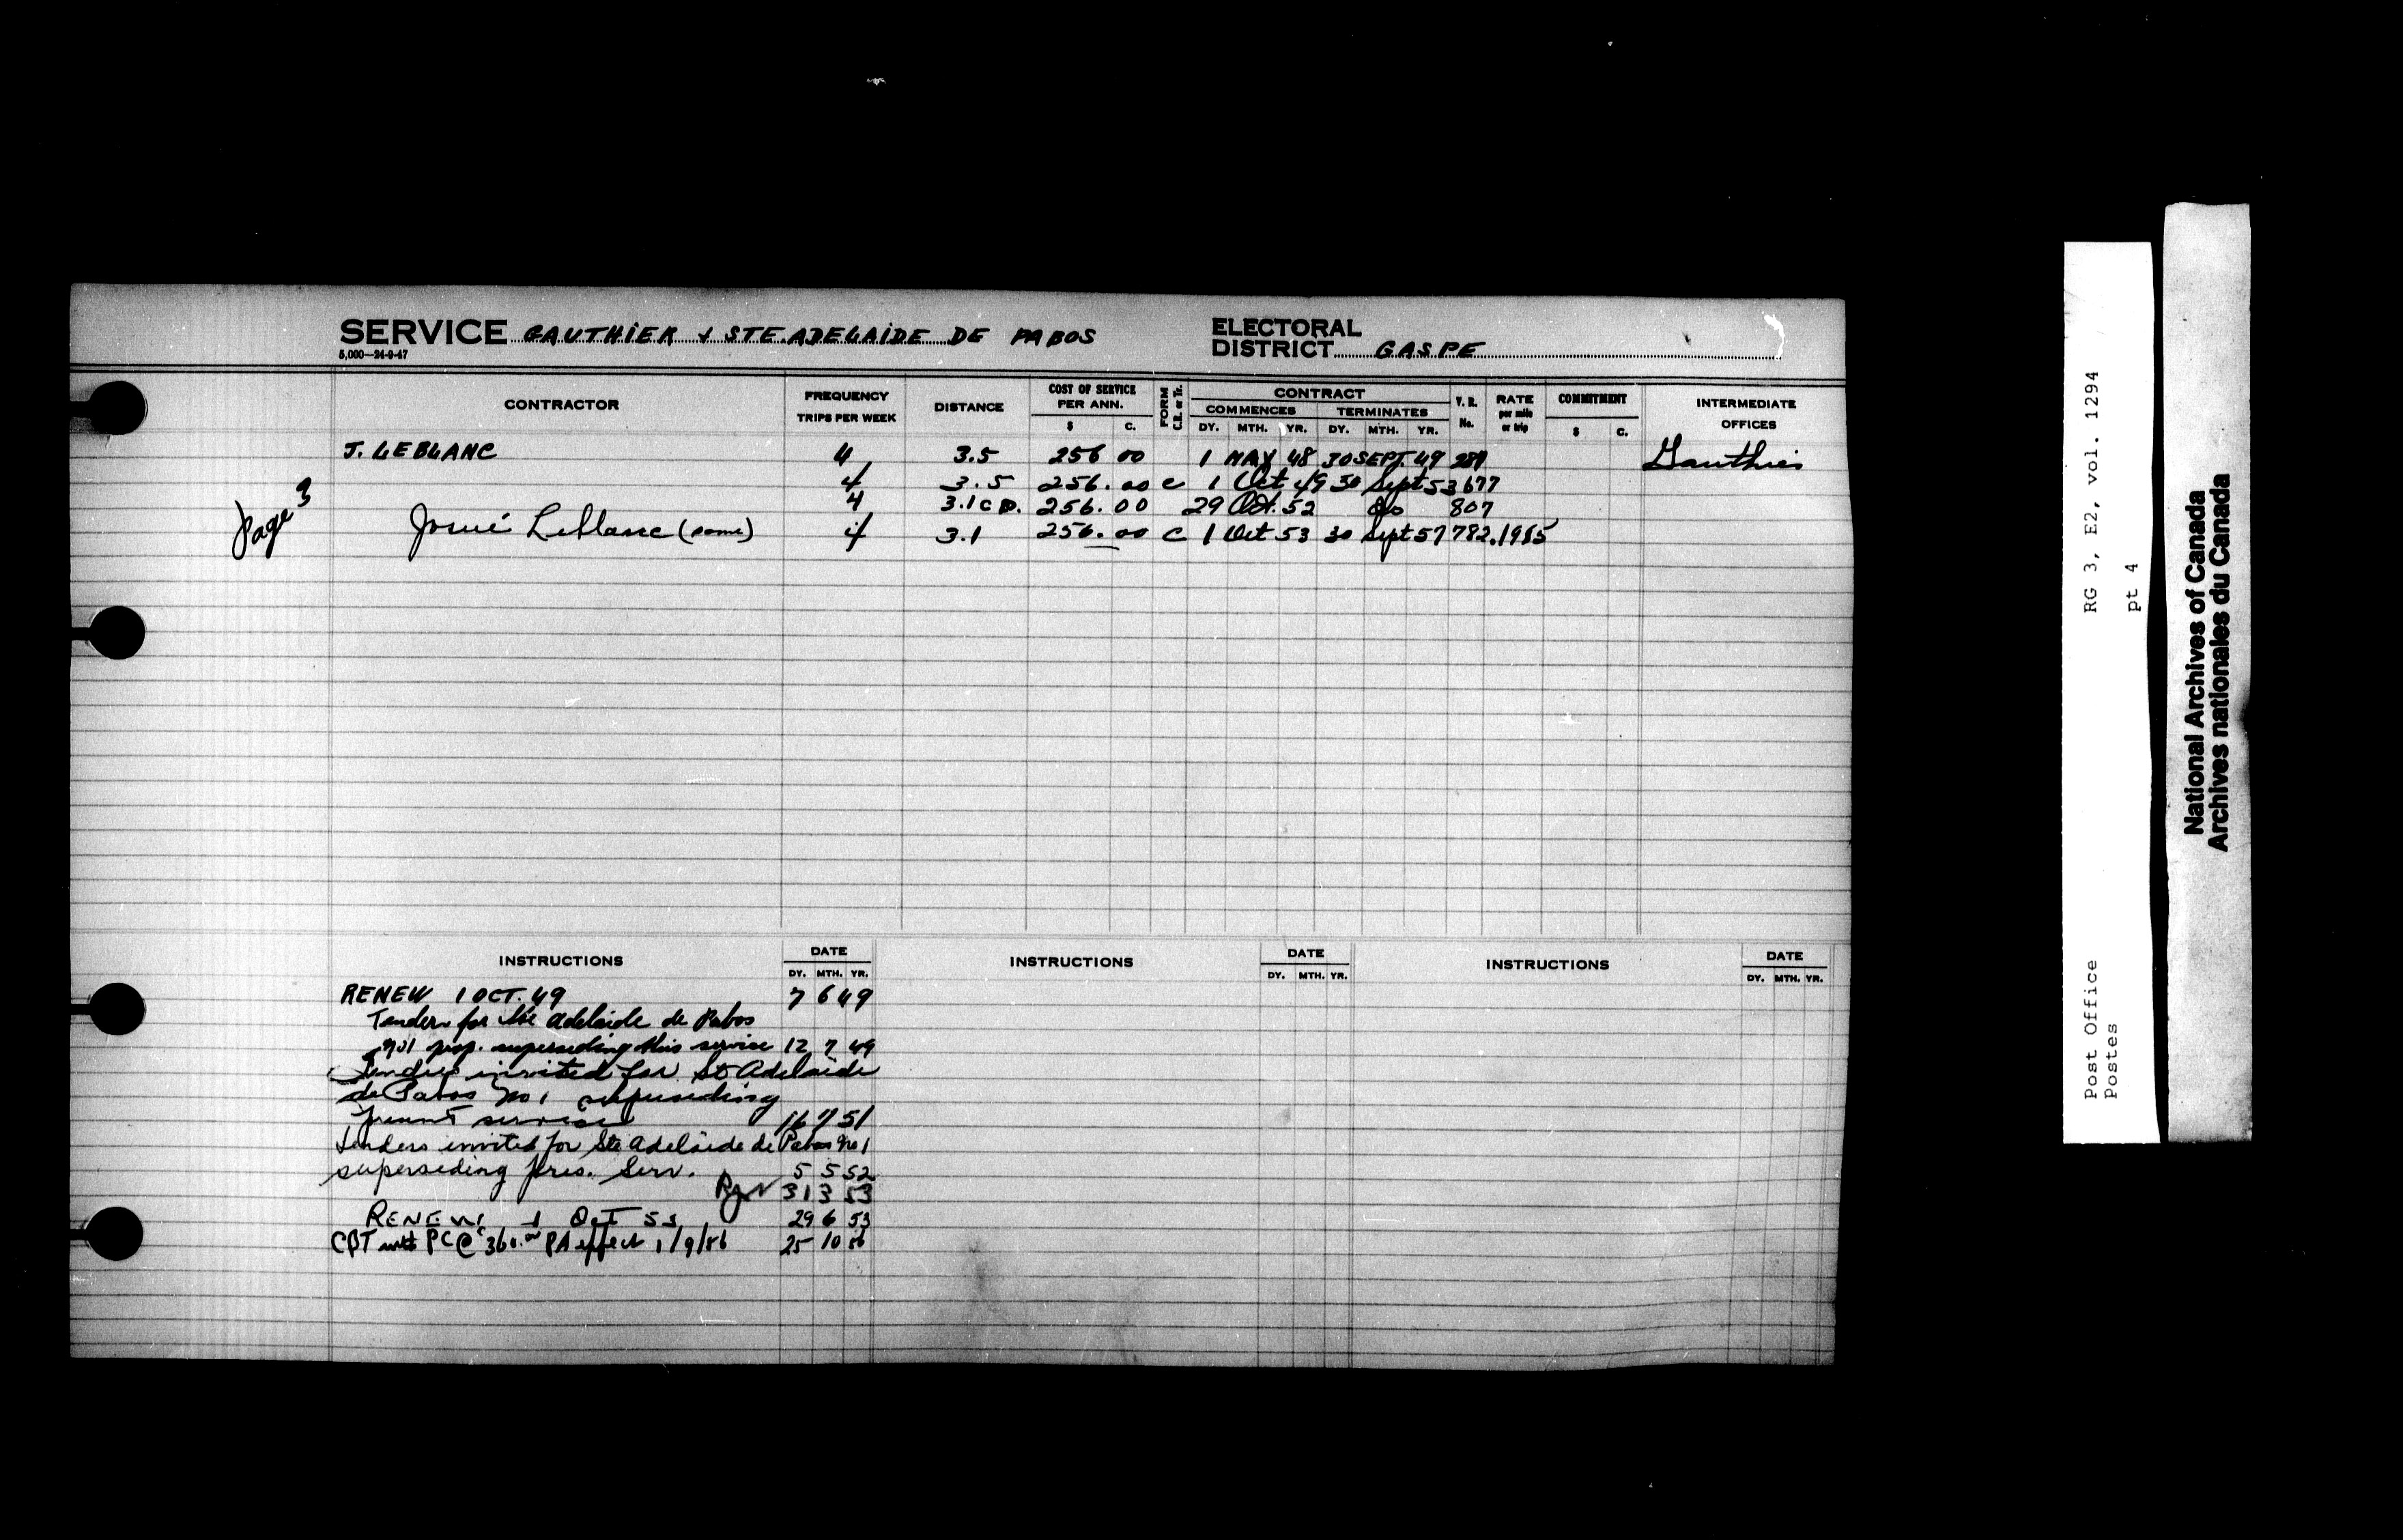 SERVICE GAUTHIER & STE. ADELAIDE DE PABOS
ELECTORAL DISTRICT GASPE
5,000—24-9-47
CONTRACTOR
FREQUENCY TRIPS PER WEEK
DISTANCE
COST OF SERVICE PER ANN. $ C.
FORM C.R. or Tr.
CONTRACT
COMMENCES DY. MTH. YR.
TERMINATES DY. MTH. YR.
V.R. No.
RATE per mile or trip
COMMITMENT $ C.
INTERMEDIATE OFFICES
J. LEBLANC 4 3.5 256 00 1 MAY 48 30 SEPT. 49 Gauthier
4 3.5 256.00 C 1 Oct 49 30 Sept 53 677
4 3.1 256.00 29 Oct. 52 do 807
Page 3
Josué Leblanc (same) 4 3.1 256.00 C 1 Oct 53 30 Sept 57 782.
INSTRUCTIONS DATE DY. MTH. YR.
INSTRUCTIONS DATE DY. MTH. YR.
INSTRUCTIONS DATE DY. MTH. YR.
RENEW 1 OCT. 49 7 6 49
Tender for Ste Adelaide de Pabos
No1 prop. superseding this service 12 7 49
Tenders invited for St Adelaide
de Pabos No 1 superseding
present service 16 7 51
Tenders invited for Ste Adelaide de Pabos No 1
superseding pres. Serv. 5 5 52
31 3 53
RENEW 1 OCT 53 29 6 53
PC @ PA effect 25 10
RG 3, E2, vol. 1294
pt 4
Post Office
Postes
National Archives of Canada
Archives nationales du Canada